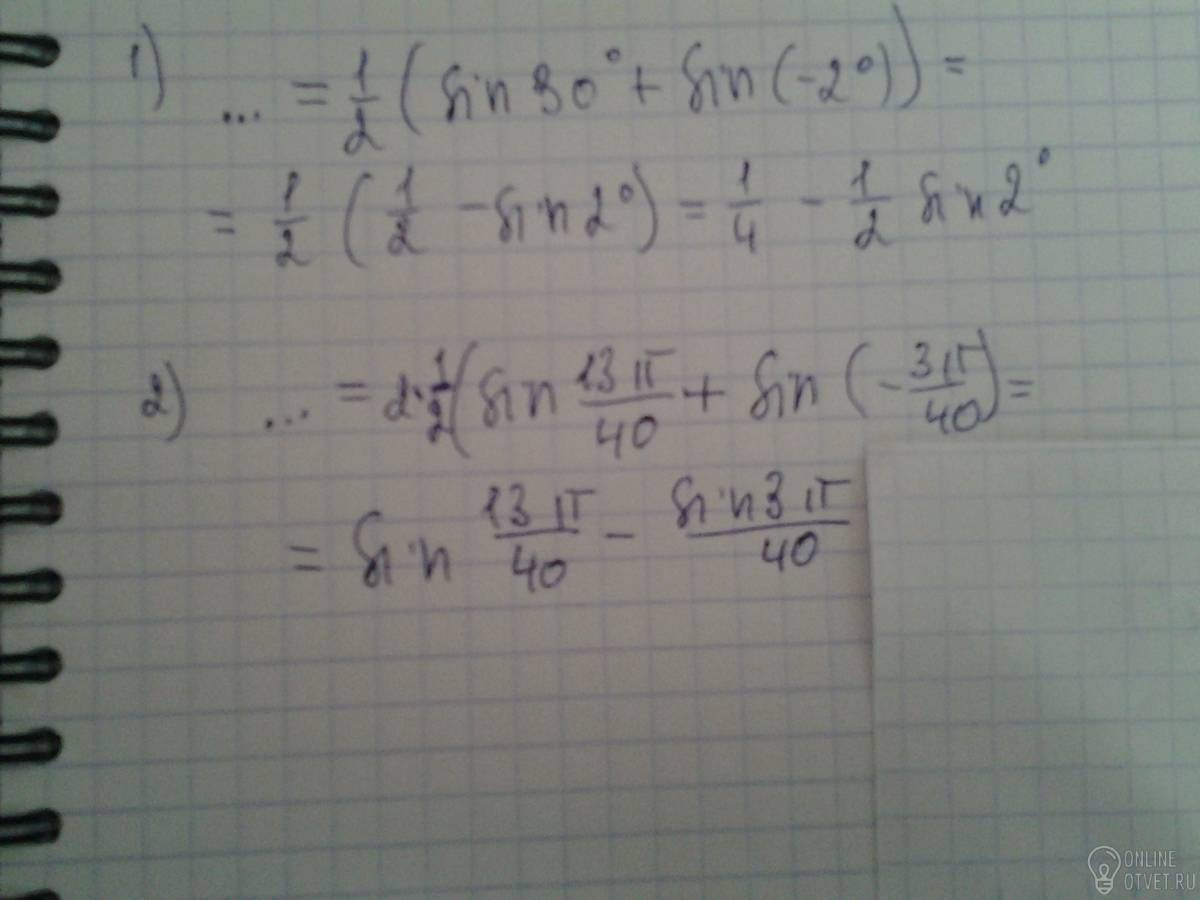 1) ... = 1/2 (sin 30° + sin (-2°)) =
= 1/2 (1/2 - sin 2°) = 1/4 - 1/2 sin 2°
2) ... = 2·1/2 (sin 13π/40 + sin (-3π/40) =
= sin 13π/40 - sin 3π/40
ONLINE
OTVET.RU